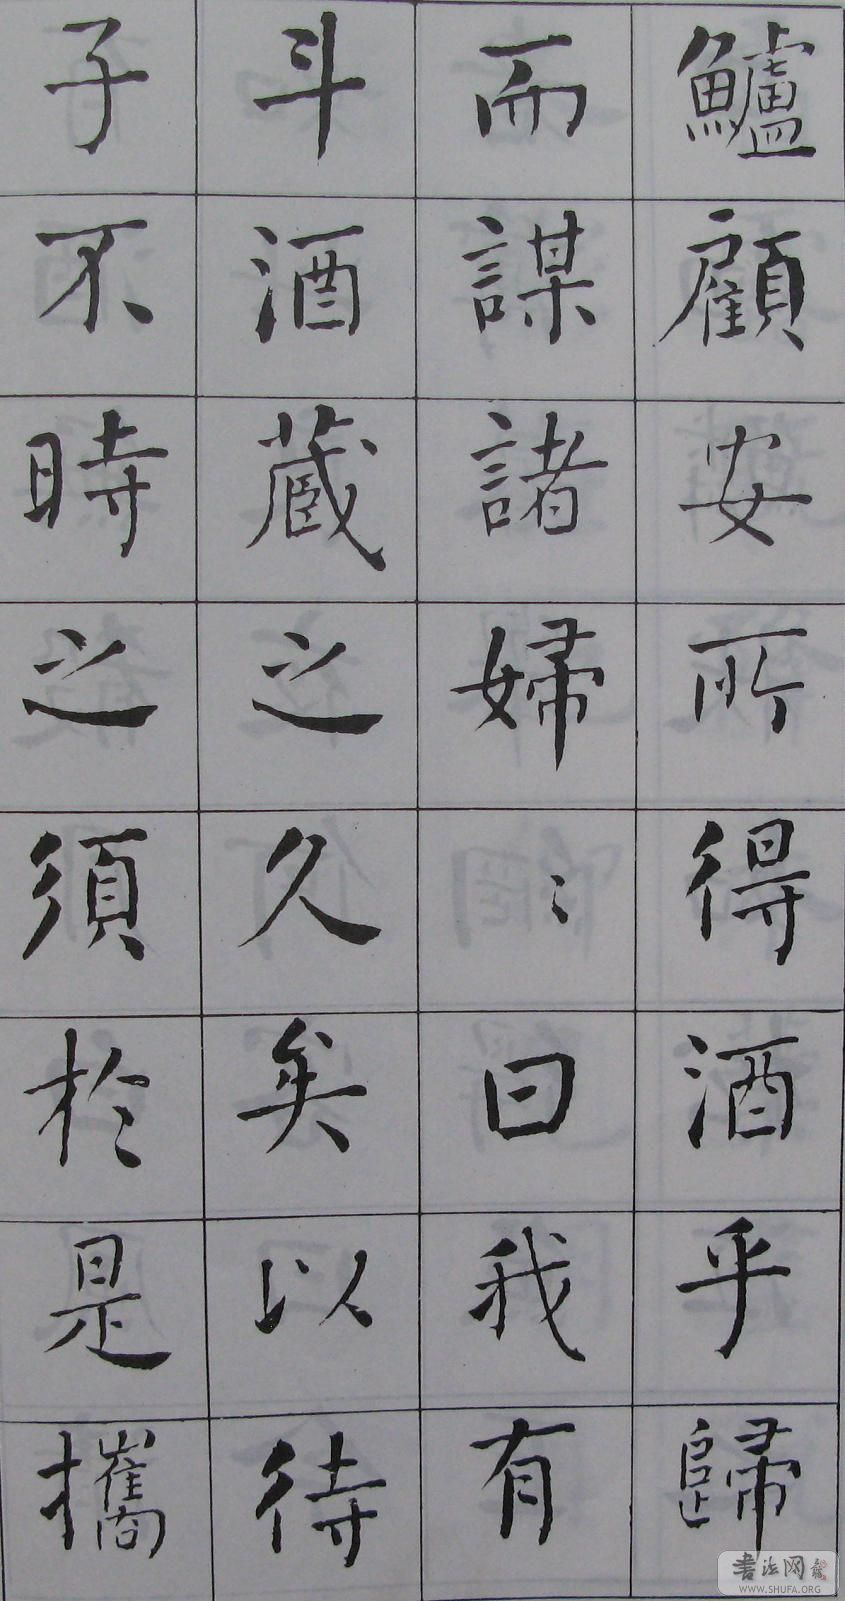 鱸顧安所得酒乎歸
而謀諸婦〻曰我有
斗酒藏之久矣以待
子不時之須於是攜
書法网
WWW.SHUFA.ORG